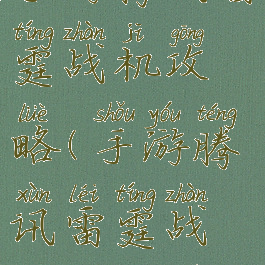 tíng zhàn jī gōng
霆战机攻
lüè shǒu yóu téng
略(手游腾
xùn léi tíng zhàn
讯雷霆战